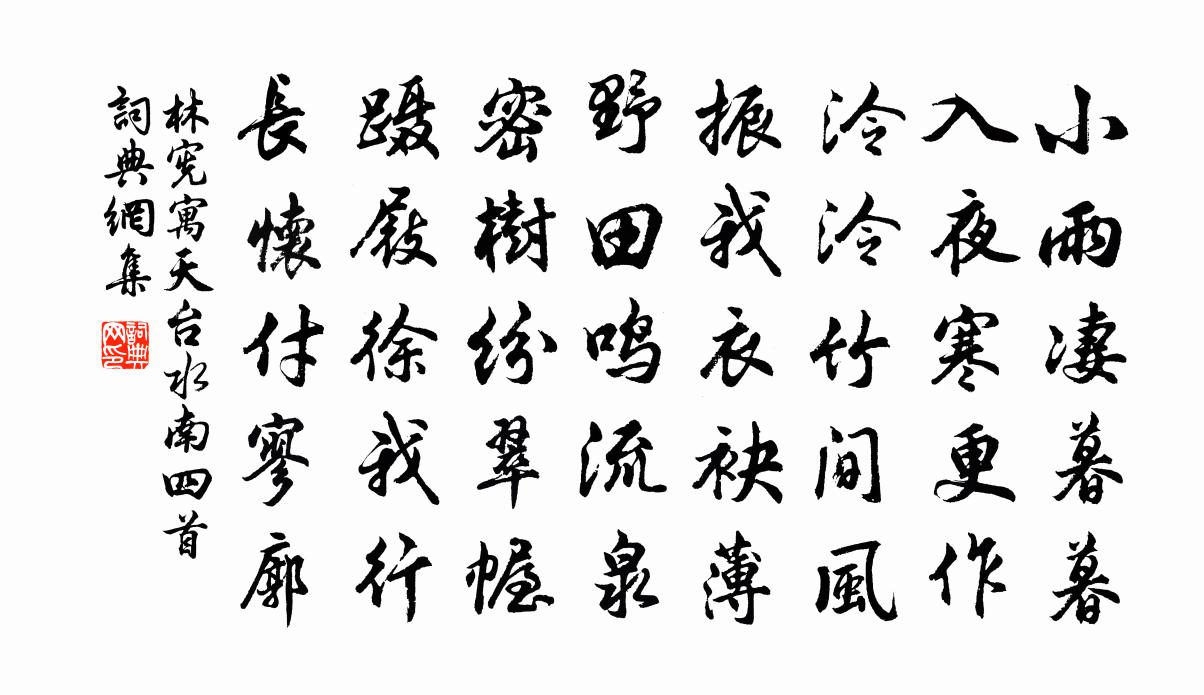 小雨淒暮暮
入夜寒更作
泠泠竹間風
振我衣袂薄
野田鳴流泉
密樹紛翠幄
躡屐徐我行
長懷付寥廓
林宪寓天台水南四首
詞典網集
詞典网印